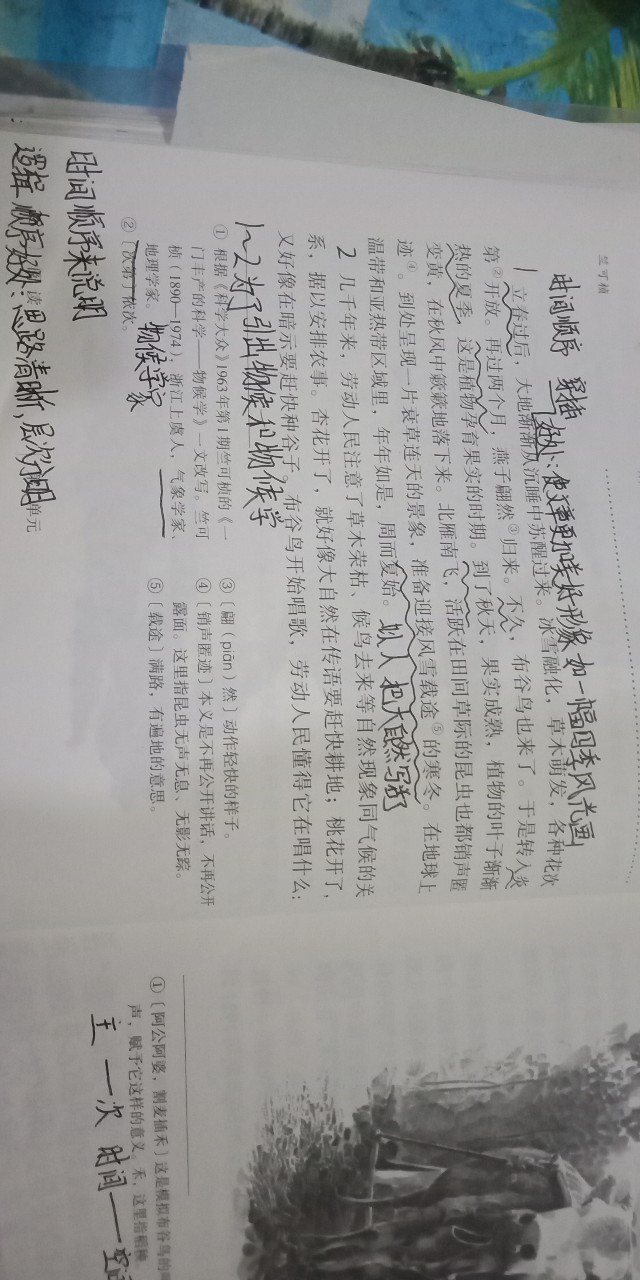 竺可桢
时间顺序 穿插
好处：使文章更加美好形象 如一幅四季风光画
1 立春过后，大地渐渐从沉睡中苏醒过来。冰雪融化，草木萌发，各种花次
第②开放。再过两个月，燕子翩然③归来。不久，布谷鸟也来了。于是转入炎
热的夏季，这是植物孕育果实的时期。到了秋天，果实成熟，植物的叶子渐渐
变黄，在秋风中簌簌地落下来。北雁南飞，活跃在田间草际的昆虫也都销声匿
迹④。到处呈现一片衰草连天的景象，准备迎接风雪载途⑤的寒冬。在地球上
温带和亚热带区域里，年年如是，周而复始。
拟人 把大自然写活
2 几千年来，劳动人民注意了草木荣枯、候鸟去来等自然现象同气候的关
系，据以安排农事。杏花开了，就好像大自然在传语要赶快耕地；桃花开了，
又好像在暗示要赶快种谷子。布谷鸟开始唱歌，劳动人民懂得它在唱什么：
1~2 为了引出物候和物候学
① 根据《科学大众》1963年第1期竺可桢的《一
门丰产的科学——物候学》一文改写。竺可
桢（1890—1974），浙江上虞人，气象学家、
地理学家。
物候学家
②〔次第〕依次。
③〔翩（piān）然〕动作轻快的样子。
④〔销声匿迹〕本义是不再公开讲话，不再公开
露面。这里指昆虫无声无息、无影无踪。
⑤〔载途〕满路，有遍地的意思。
时间顺序来说明
逻辑 顺序好处：思路清晰，层次分明
读
单元
①〔阿公阿婆，割麦插禾〕这是模拟布谷鸟的叫
声，赋予它这样的意义。禾，这里指稻秧
主 一次 时间——空间